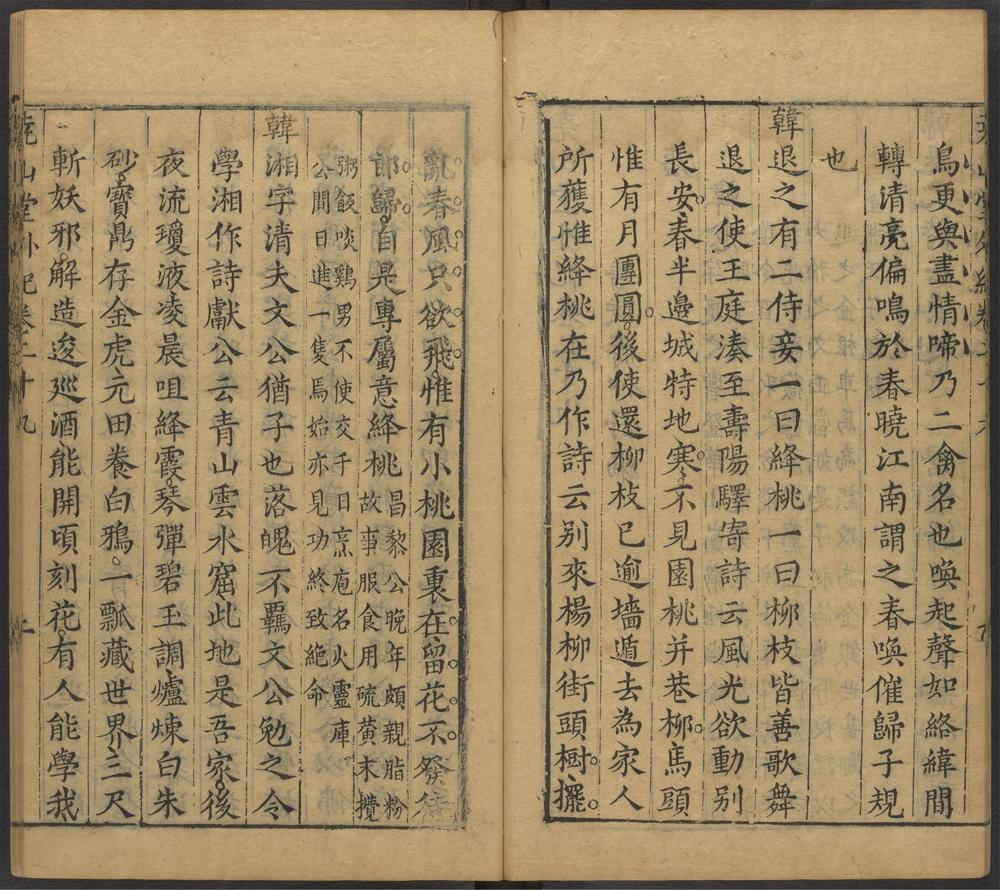 鳥更與盡情啼乃二禽名也喚起聲如絡緯間
轉清亮偏鳴於春曉江南謂之春喚催歸子規
也
韓退之有二侍妾一曰絳桃一曰柳枝皆善歌舞
退之使王庭湊至壽陽驛寄詩云風光欲動別
長安春半邊城特地寒不見園桃并巷柳馬頭
惟有月團圓後使還柳枝已逾墻遁去為家人
所獲惟絳桃在乃作詩云別來楊柳街頭樹擺
亂春風只欲飛惟有小桃園裏在留花不發待
郎歸自是專屬意絳桃昌黎公晚年頗親脂粉
故事服食用硫黃末攪
粥飯啖雞男不使交千日烹庖名火靈庫
公間日進一隻焉始亦見功終致絕命
韓湘字清夫文公猶子也落魄不羈文公勉之令
學湘作詩獻公云青山雲水窟此地是吾家後
夜流瓊液凌晨咀絳霞琴彈碧玉調爐煉白朱
砂寶鼎存金虎元田養白鴉一瓢藏世界三尺
斬妖邪解造逡巡酒能開頃刻花有人能學我
堯山堂外紀卷二十九
二